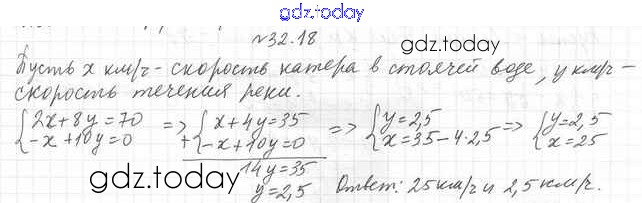 gdz.today
№32.18
gdz.today
Пусть x км/ч - скорость катера в стоячей воде, y км/ч -
скорость течения реки.
{2x+8y=70 => {x+4y=35 => {y=2,5 => {y=2,5
{-x+10y=0 +{-x+10y=0 {x=35-4·2,5 {x=25
14y=35
gdz.today
y=2,5 Ответ: 25 км/ч и 2,5 км/ч.